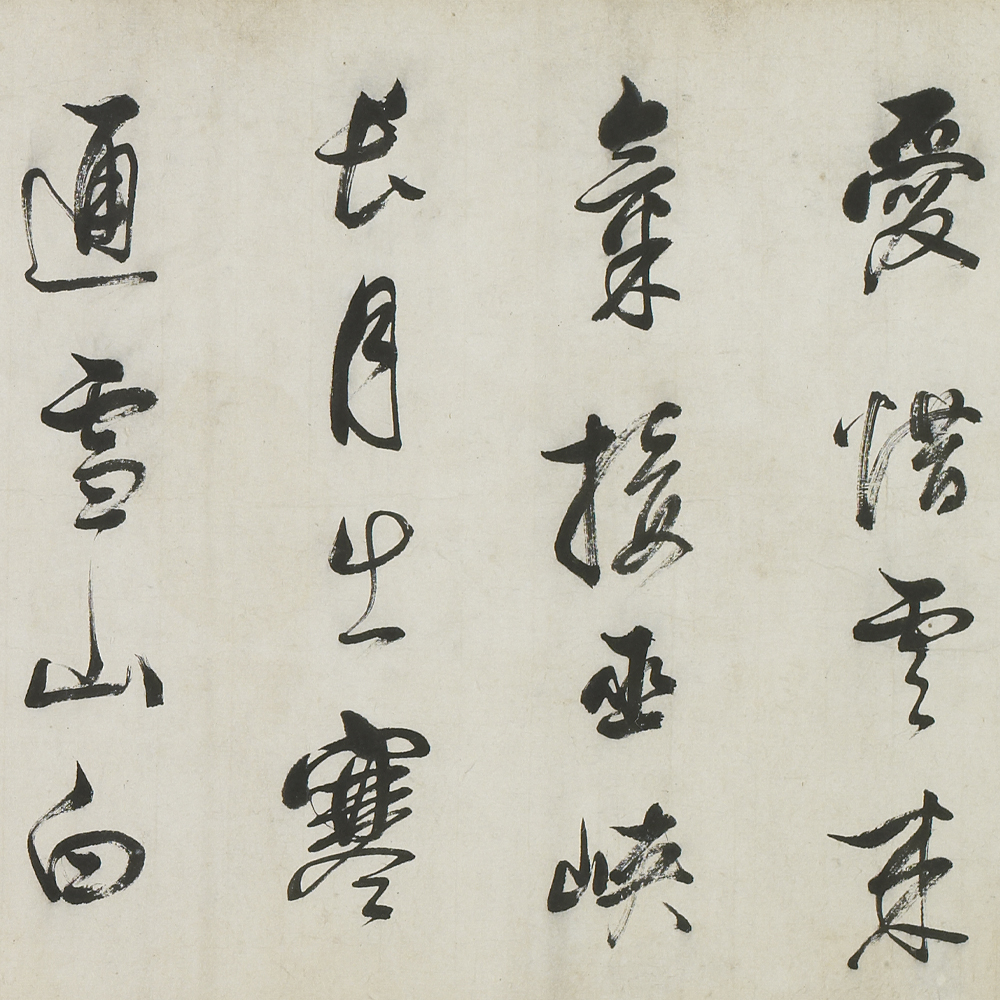 愛惜雲來
氣接巫峽
長月生寒
通雪山白